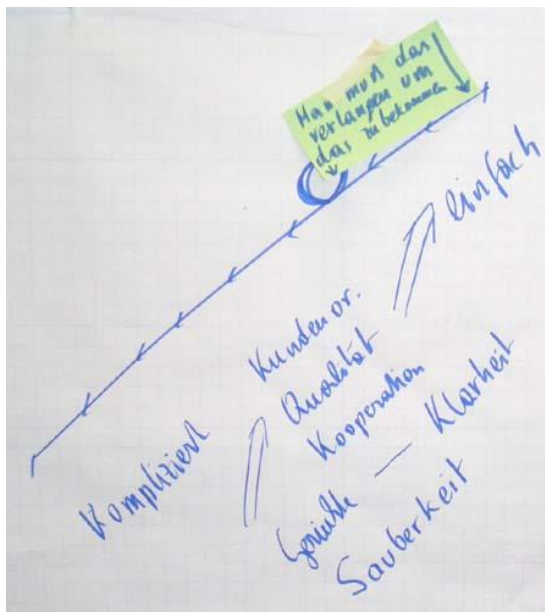 Man muss das
verlangen um
das zu bekommen
einfach
Kundenor.
Qualität
Kooperation
Kompliziert
— Klarheit
Sauberkeit